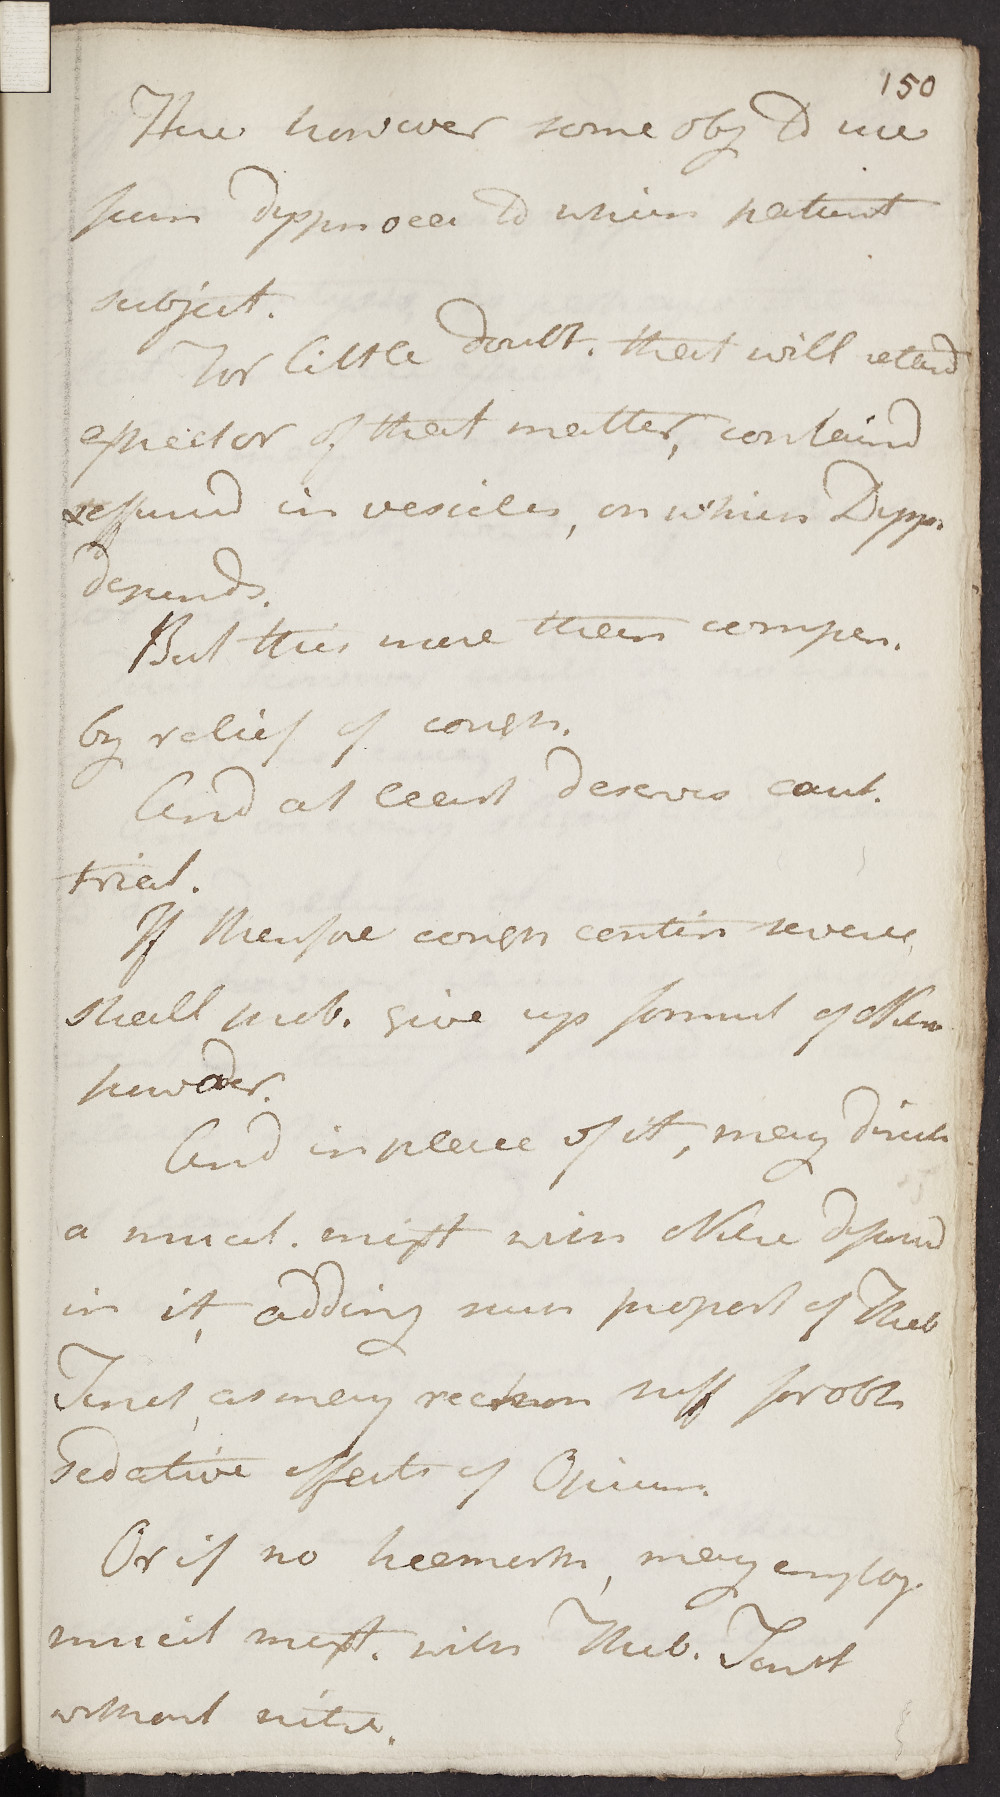 150
There however some obj to use
from dyspnoea to which patient
subject.
For little doubt. that will retard
expector of that matter, contained
& effused in vesicles, on which Dyspn.
depends.
But this more than compen.
by relief of cough.
And at least deserves caut.
trial.
If therefore cough contin severe
shall prob. give up formul of Nitr
powder.
And in place of it, may direct
a mucil. mixt with Nitre diffused
in it, adding such proport of Theb
Tinct, as may reckon suff for obt
sedative effects of Opium.
Or if no haemorrh, may employ
mucil mixt. with Theb. Tinct
without nitre.